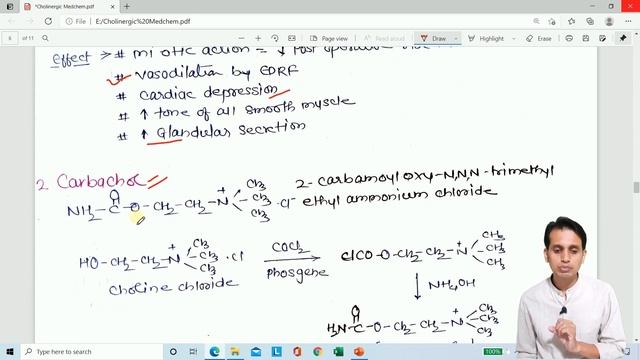 *Cholinergic Medchem.pdf
E:/Cholinergic%20Medchem.pdf
8 of 11
Page view
Read aloud
Add text
Draw
Highlight
Erase
Effect > # miotic action =
# vasodilation by EDRF
# cardiac depression
# ↑ tone of all smooth muscle
# ↑ Glandular secretion
2. Carbachol
NH2-C-O-CH2-CH2-N+ CH3 CH3 CH3 . Cl-
O
2-carbamoyl oxy-N,N,N-trimethyl
ethyl ammonium chloride
HO-CH2-CH2-N+ CH3 CH3 CH3 . Cl
choline chloride
COCl2
phosgene
ClCO-O-CH2-CH2-N+ CH3 CH3 CH3
↓ NH4OH
H2N-C-O-CH2-CH2-N+ CH3 CH3 CH3
O
Type here to search
100%